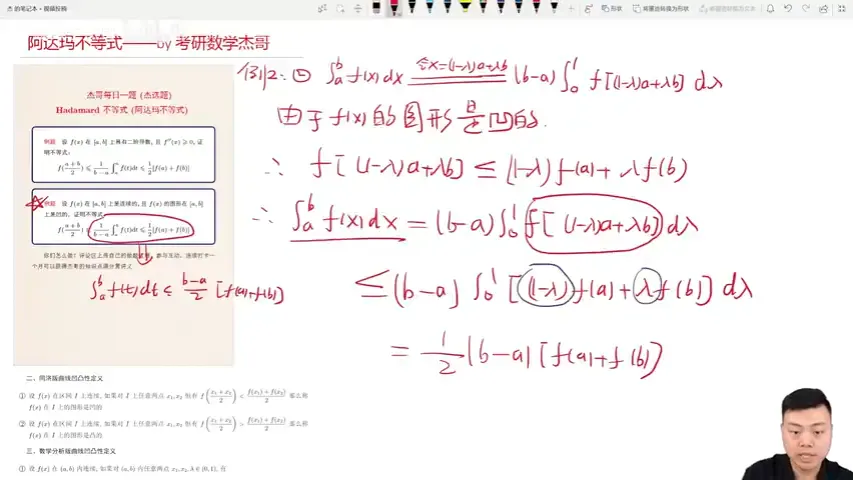 杰 的笔记本 • 视频投稿
形状
将墨迹转换为形状
阿达玛不等式——by 考研数学杰哥
杰哥每日一题 (杰选题)
Hadamard 不等式 (阿达玛不等式)
例题 设 f(x) 在 [a,b] 上具有二阶导数, 且 f''(x) ⩾ 0, 证
明不等式:
f((a+b)/2) ⩽ 1/(b−a) ∫_a^b f(t)dt ⩽ 1/2[f(a)+f(b)]
例题 设 f(x) 在 [a,b] 上是连续的, 且 f(x) 的图形在 [a,b]
上是凹的, 证明不等式
f((a+b)/2) ⩽ 1/(b−a) ∫_a^b f(t)dt ⩽ 1/2[f(a)+f(b)]
∫_a^b f(t)dt ≤ (b−a)/2 [f(a)+f(b)]
二、同济版曲线凹凸性定义
① 设 f(x) 在区间 I 上连续, 如果对 I 上任意两点 x₁,x₂ 恒有 f((x₁+x₂)/2) < (f(x₁)+f(x₂))/2 那么称
f(x) 在 I 上的图形是凹的
② 设 f(x) 在区间 I 上连续, 如果对 I 上任意两点 x₁,x₂ 恒有 f((x₁+x₂)/2) > (f(x₁)+f(x₂))/2 那么称
f(x) 在 I 上的图形是凸的
三、数学分析版曲线凹凸性定义
① 设 f(x) 在 (a,b) 内连续, 如果对 (a,b) 内任意两点 x₁,x₂,λ∈(0,1), 有
例2: ② ∫_a^b f(x)dx =令x=(1-λ)a+λb= (b-a)∫_0^1 f[(1-λ)a+λb]dλ
由于f(x)的图形是凹的.
∴ f[(1-λ)a+λb] ≤ (1-λ)f(a)+λf(b)
∴ ∫_a^b f(x)dx = (b-a)∫_0^1 f[(1-λ)a+λb]dλ
≤ (b-a)∫_0^1 [(1-λ)f(a)+λf(b)]dλ
= 1/2 (b-a)[f(a)+f(b)]